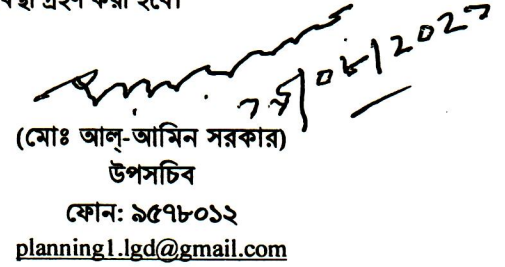 গ্রহণ করা হবে।
(মোঃ আল্-আমিন সরকার)
উপসচিব
ফোন: ৯৫৭৮০১২
planning1.lgd@gmail.com